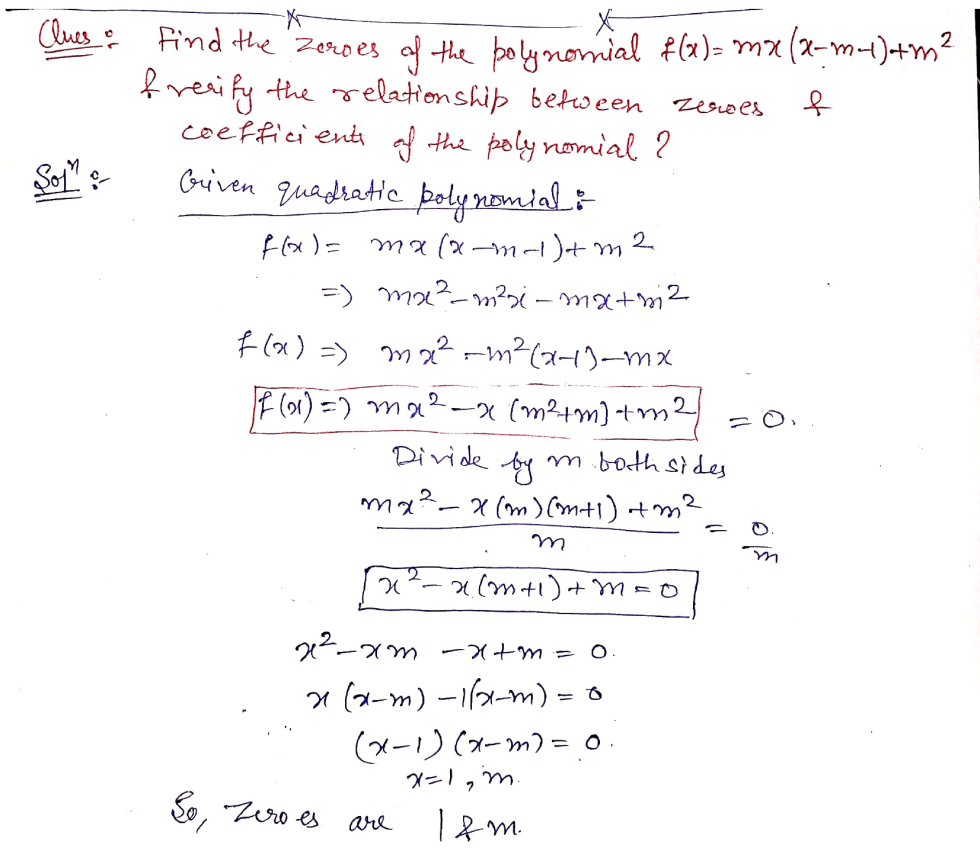 Clues :- Find the zeroes of the polynomial f(x) = mx(x-m-1)+m²
& verify the relationship between zeroes &
coefficients of the polynomial ?
Solⁿ :- Given quadratic polynomial :-
f(x) = mx(x-m-1)+m²
=> mx²-m²x-mx+m²
f(x) => mx²-m²(x-1)-mx
f(x) => mx²-x(m²+m)+m² = 0.
Divide by m both sides
mx²-x(m)(m+1)+m² = 0.
m m
x²-x(m+1)+m=0
x²-xm -x+m = 0.
x(x-m) -1(x-m) = 0
(x-1)(x-m) = 0.
x=1, m.
So, Zeroes are 1 & m.